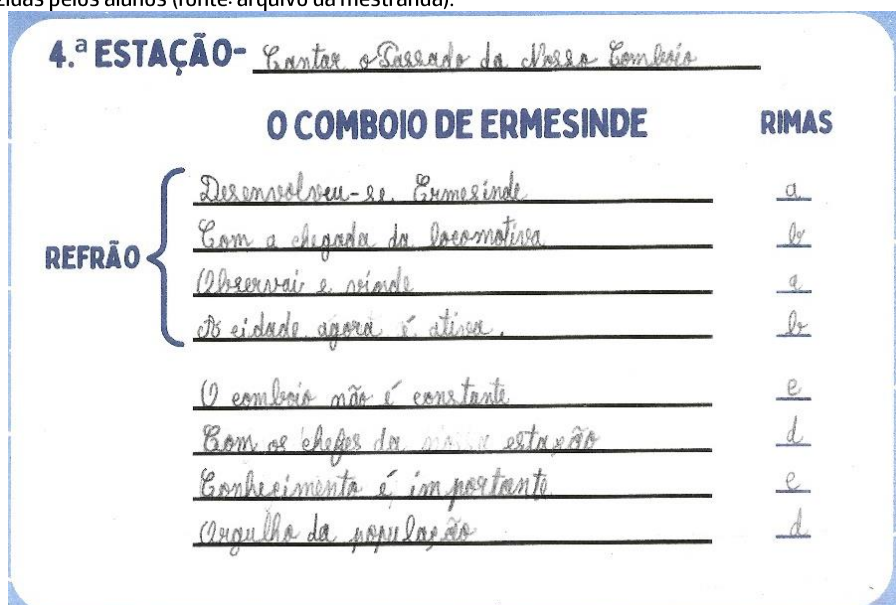 zidas pelos alunos (fonte: arquivo da mestranda).
4.ª ESTAÇÃO- Cantar o Passado da Nosso Comboio
O COMBOIO DE ERMESINDE RIMAS
REFRÃO
Desenvolveu-se Ermesinde a
Com a chegada da locomotiva b
Observai e vinde a
A cidade agora é ativa. b
O comboio não é constante c
Com os chefes da nossa estação d
Conhecimento é importante c
Orgulho da população d